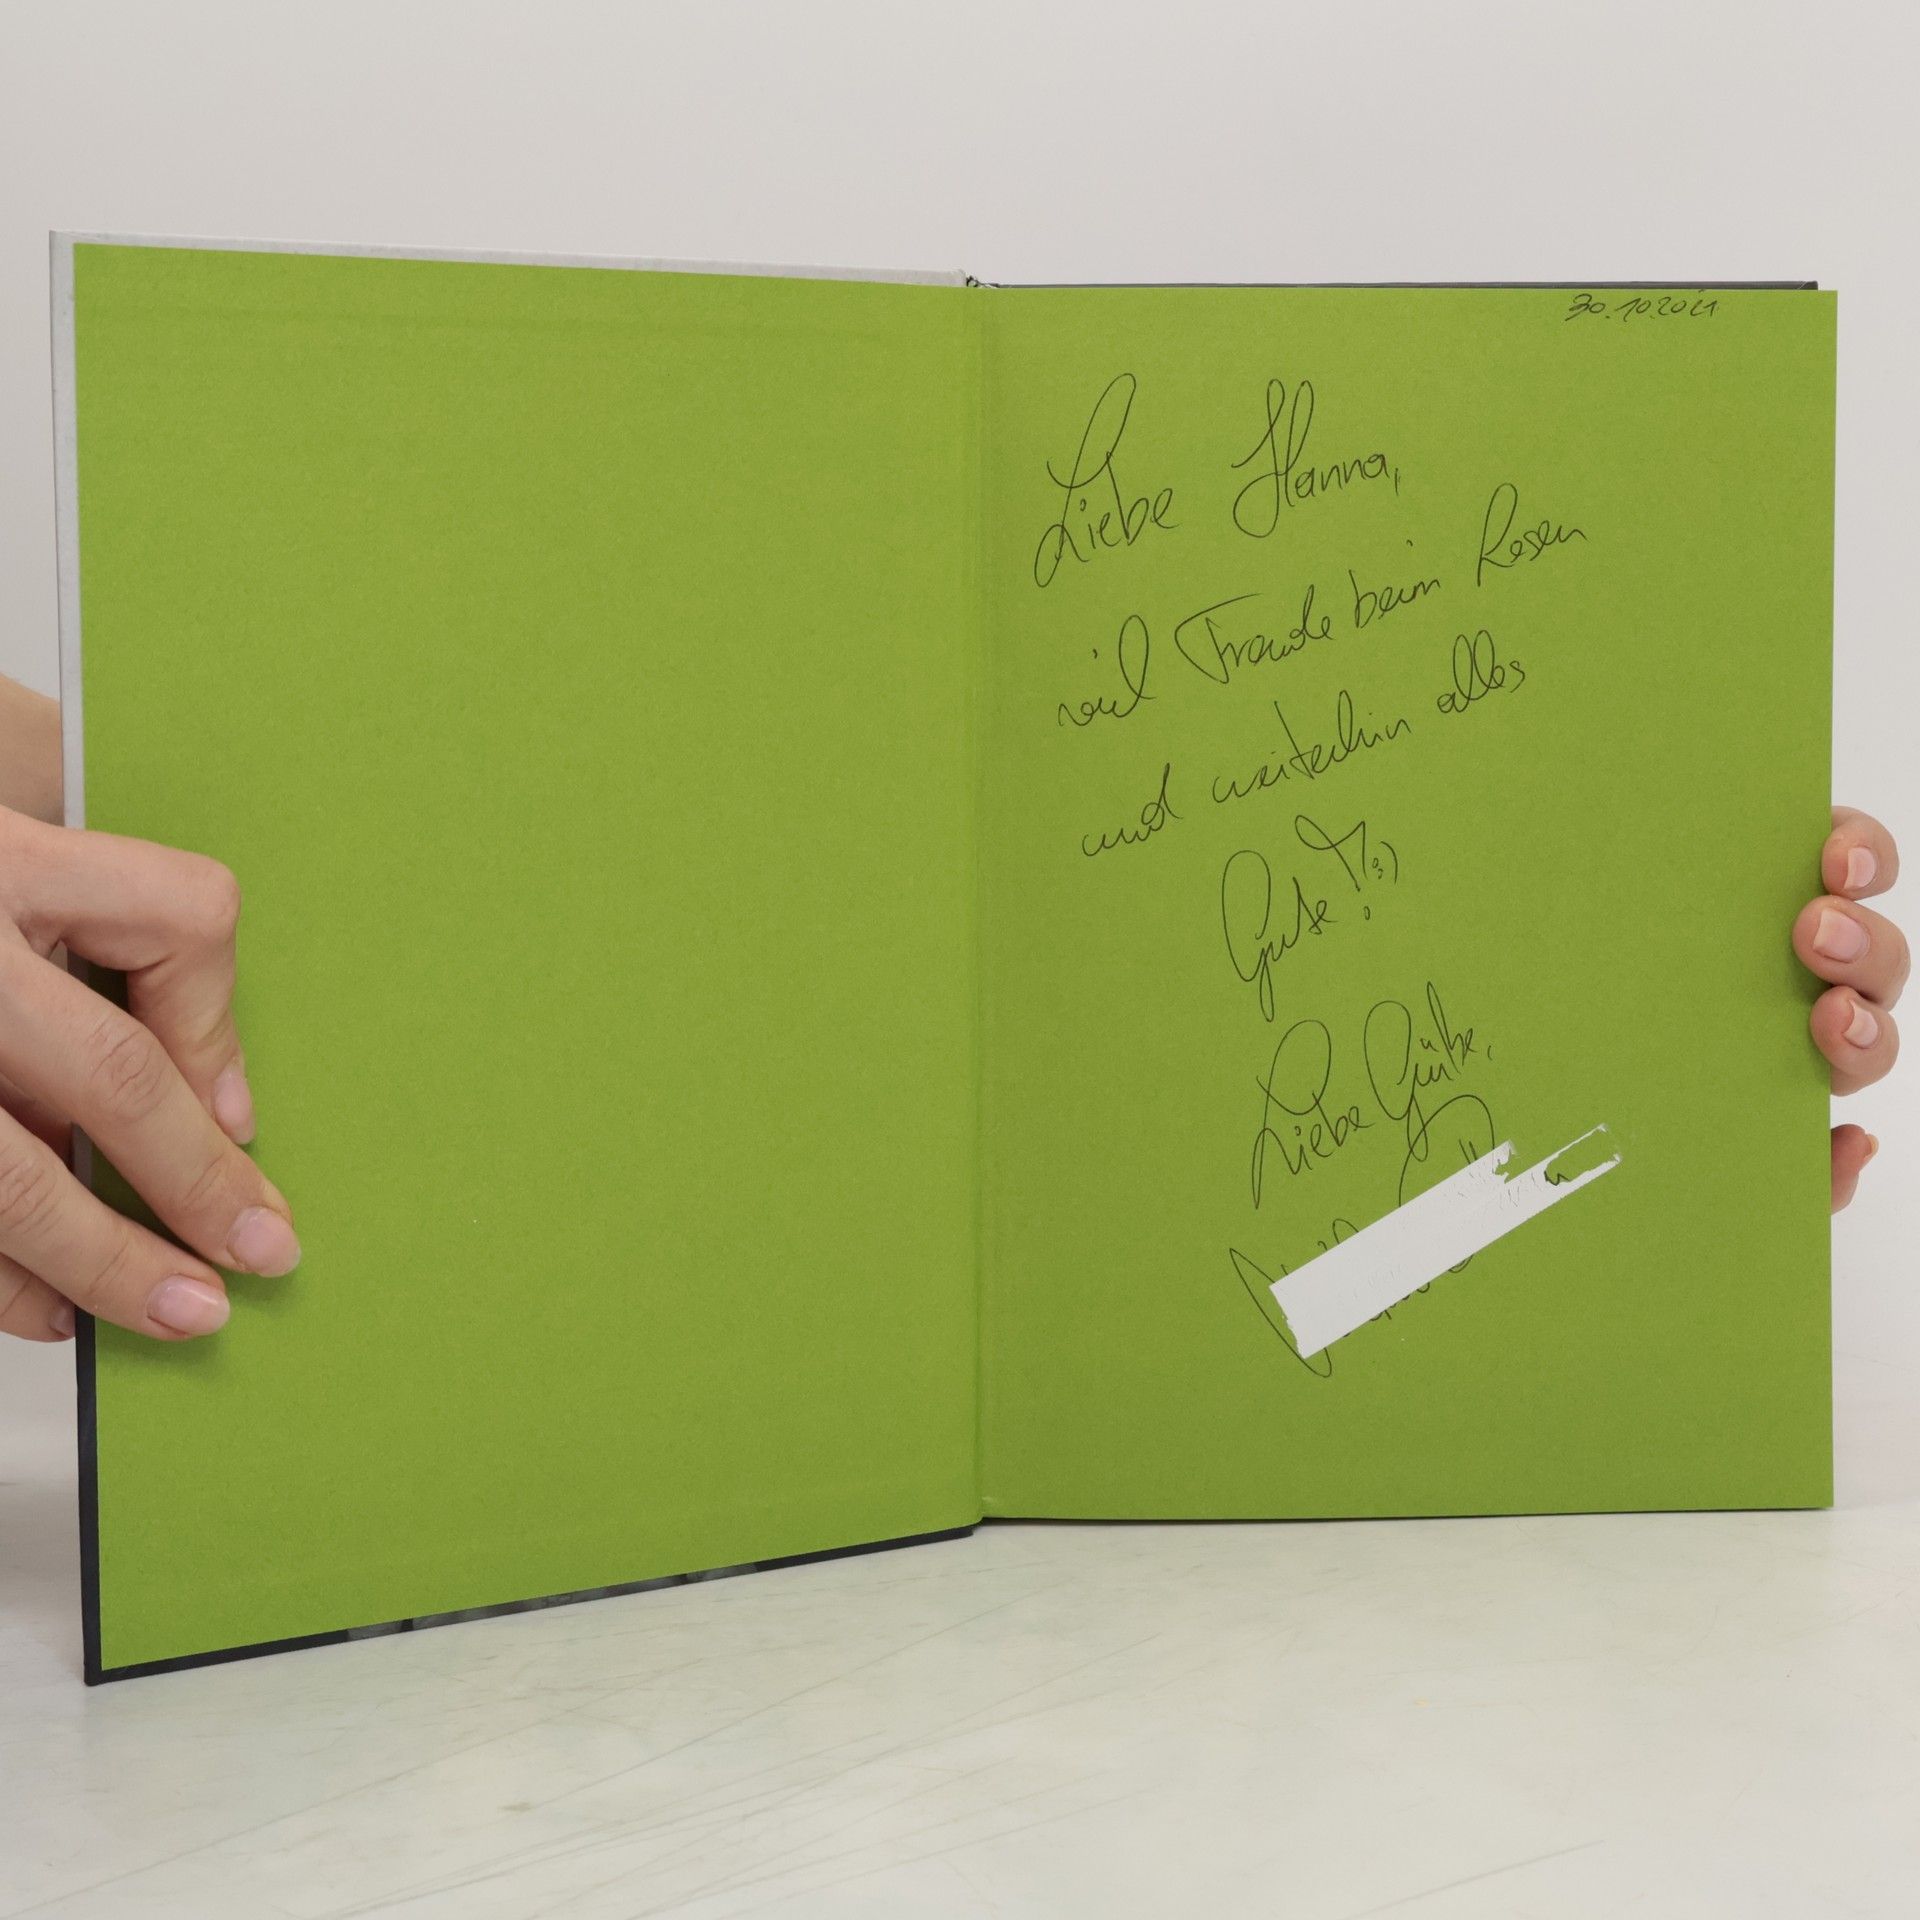 30.10.2021
Liebe Hanna,
viel Freude beim Lesen
und weiterhin alles
Gute! :)
Liebe Grüße,